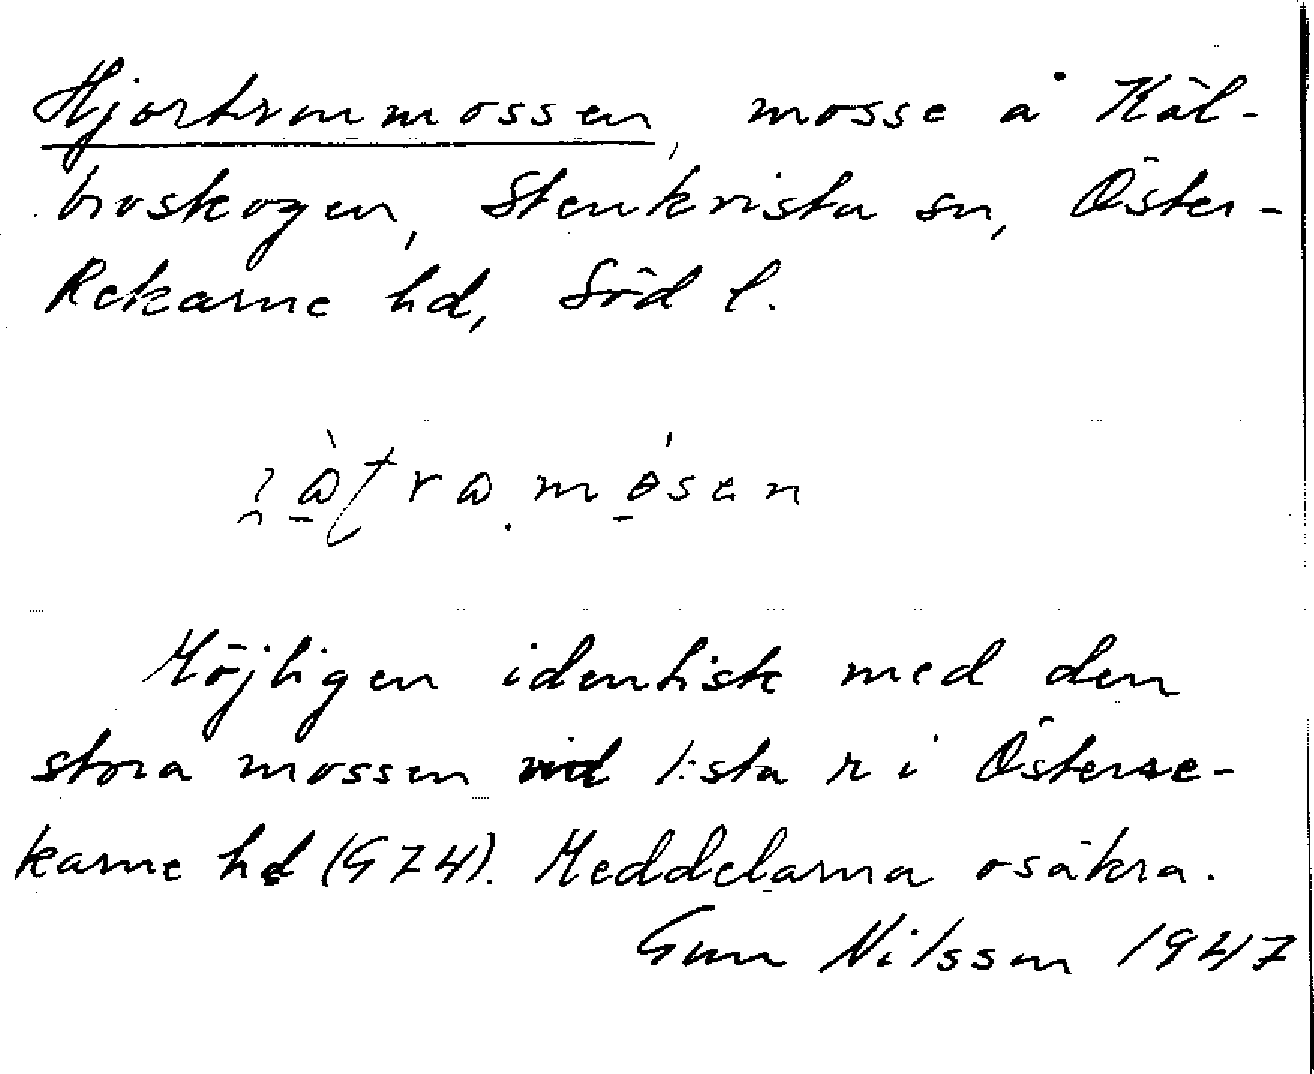 Hjortronmossen, mosse å Käl-
broskogen, Stenkvista sn, Öster-
Rekarne hd, Söd l.
Möjligen identisk med den
stora mossen vid l:sta r i Österre-
karne hd (G74). Meddelarna osäkra.
Gun Nilsson 1947